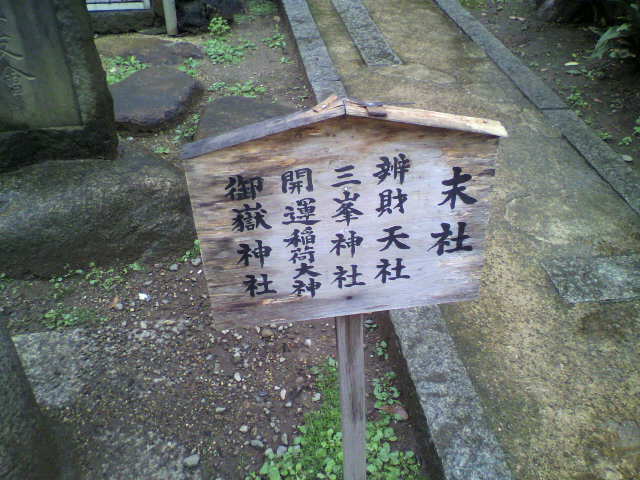 末社
辨財天社
三峯神社
開運稲荷大神
御嶽神社